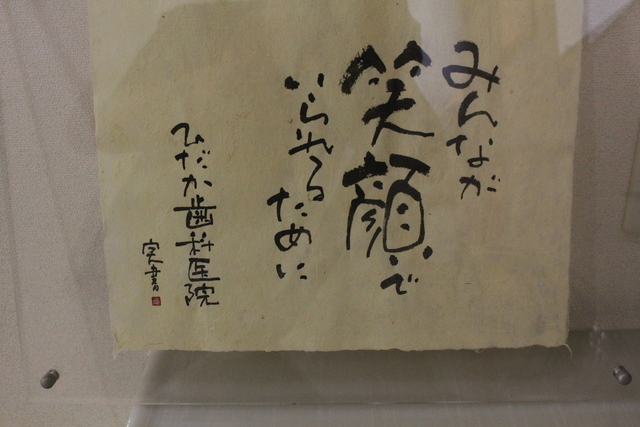 みんなが
笑顔で
いられる
ために
ひだか歯科医院
実書